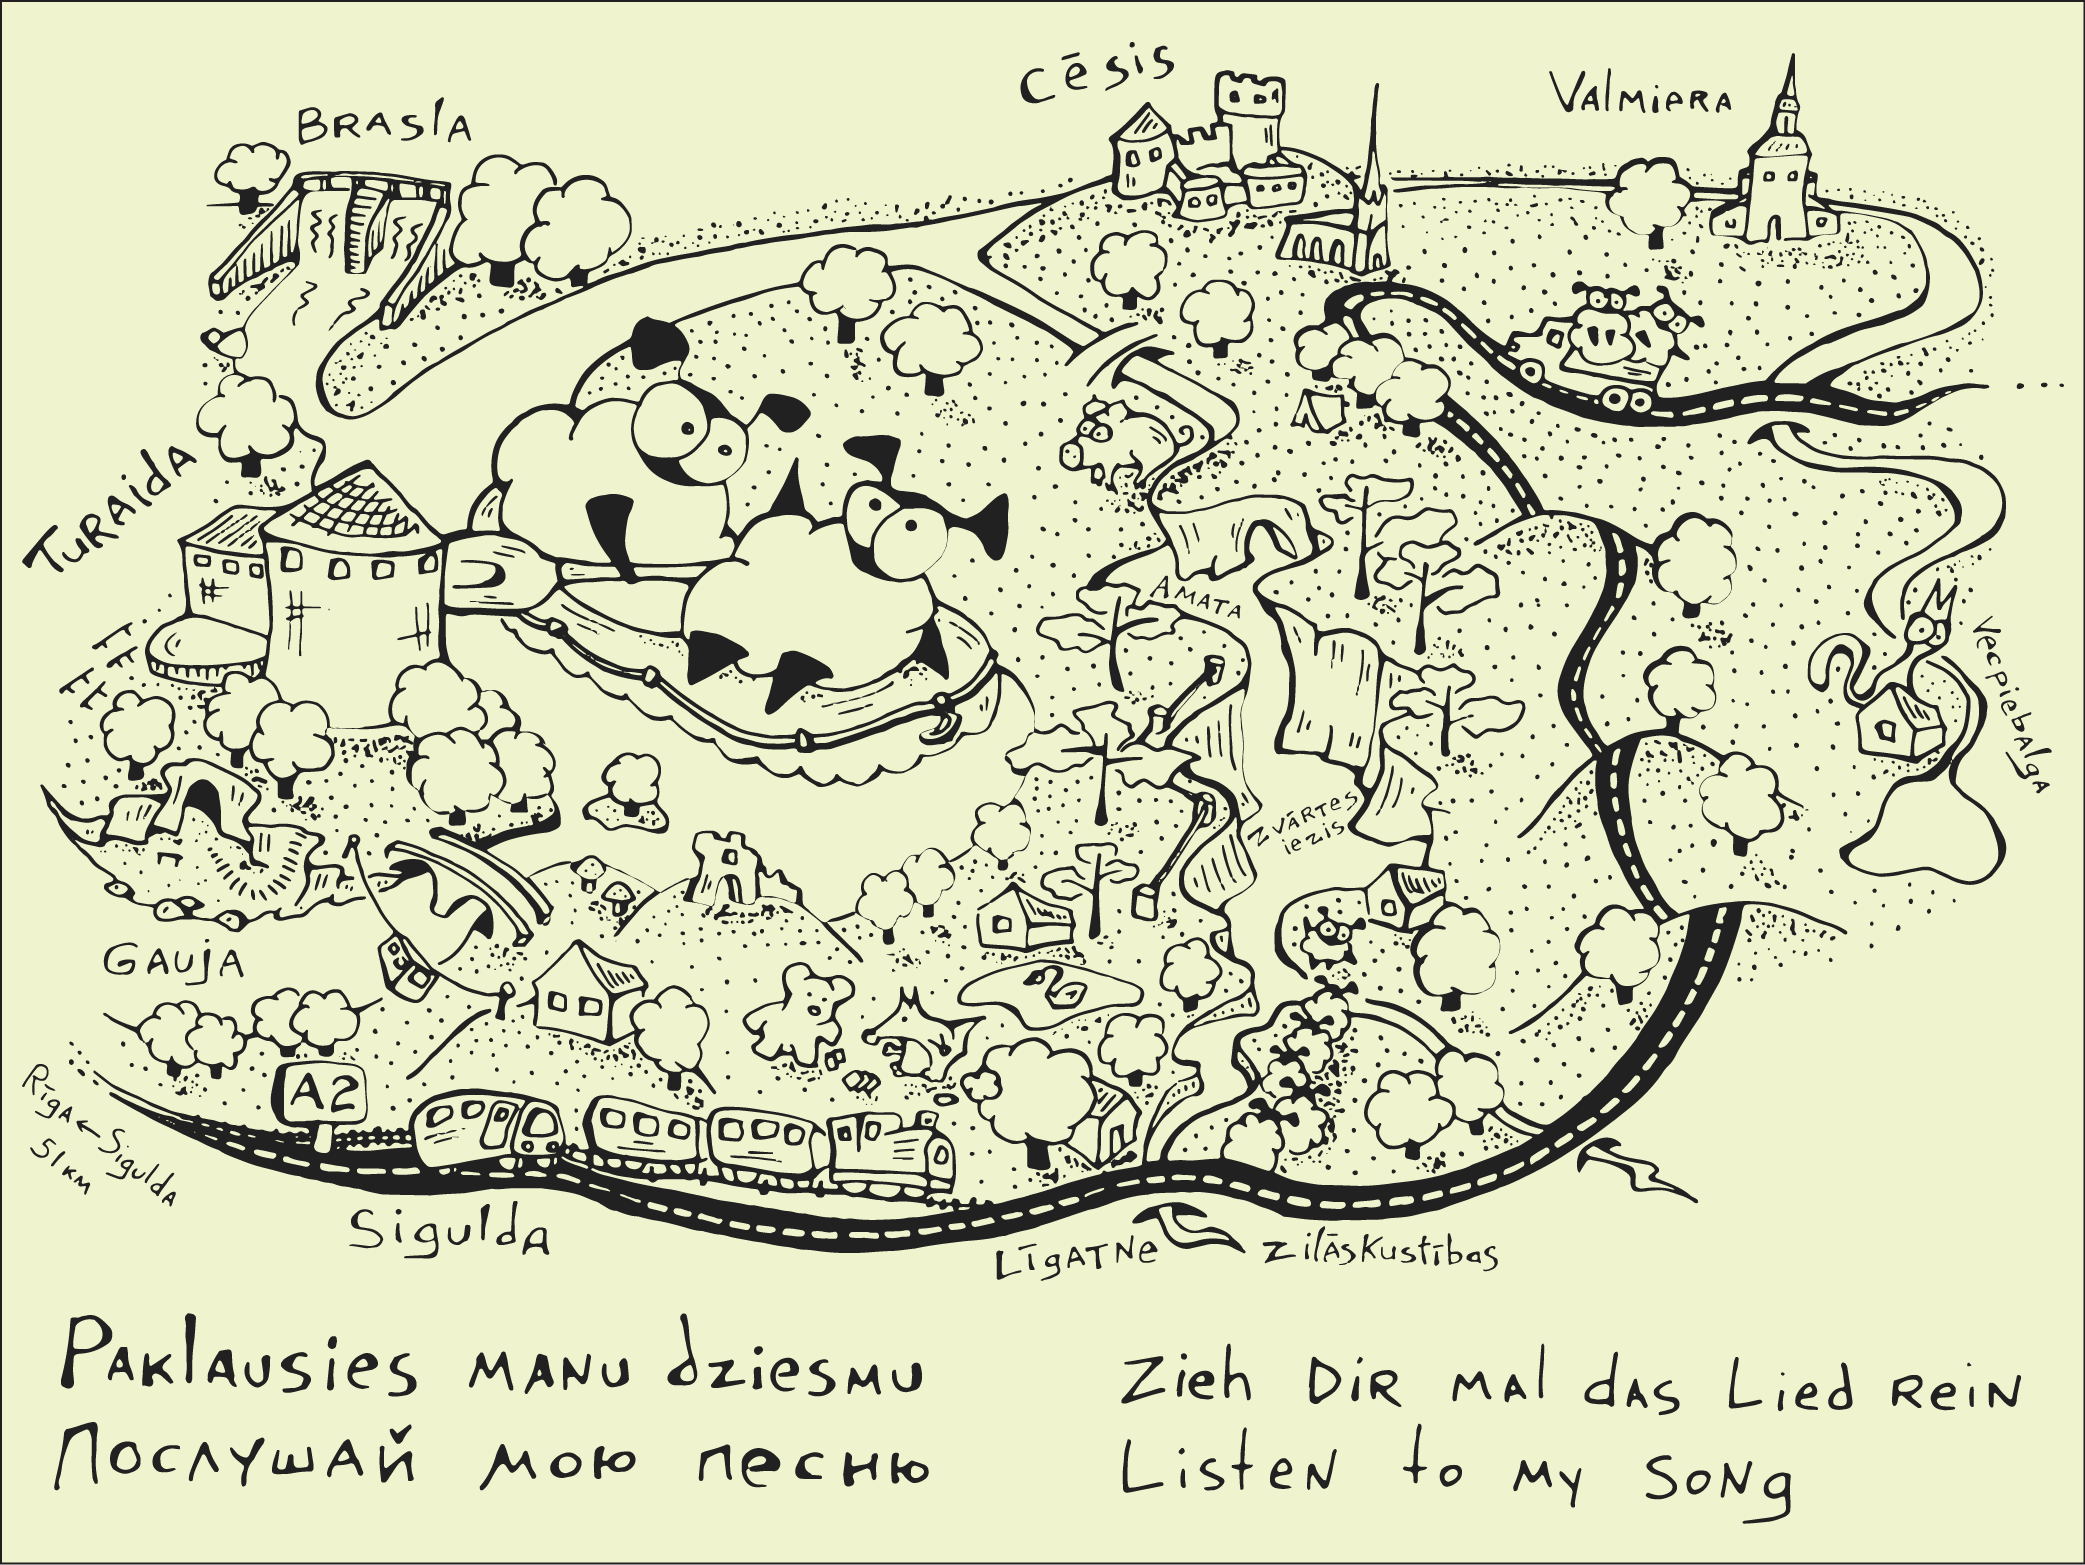 Cēsis
Valmiera
Brasla
Turaida
Amata
Vecpiebalga
Zvārtes
iezis
Gauja
A2
Rīga ← Sigulda
51 km
Sigulda
Līgatne
Zilāskustības
Paklausies manu dziesmu
Послушай мою песню
Zieh Dir mal das Lied rein
Listen to my song